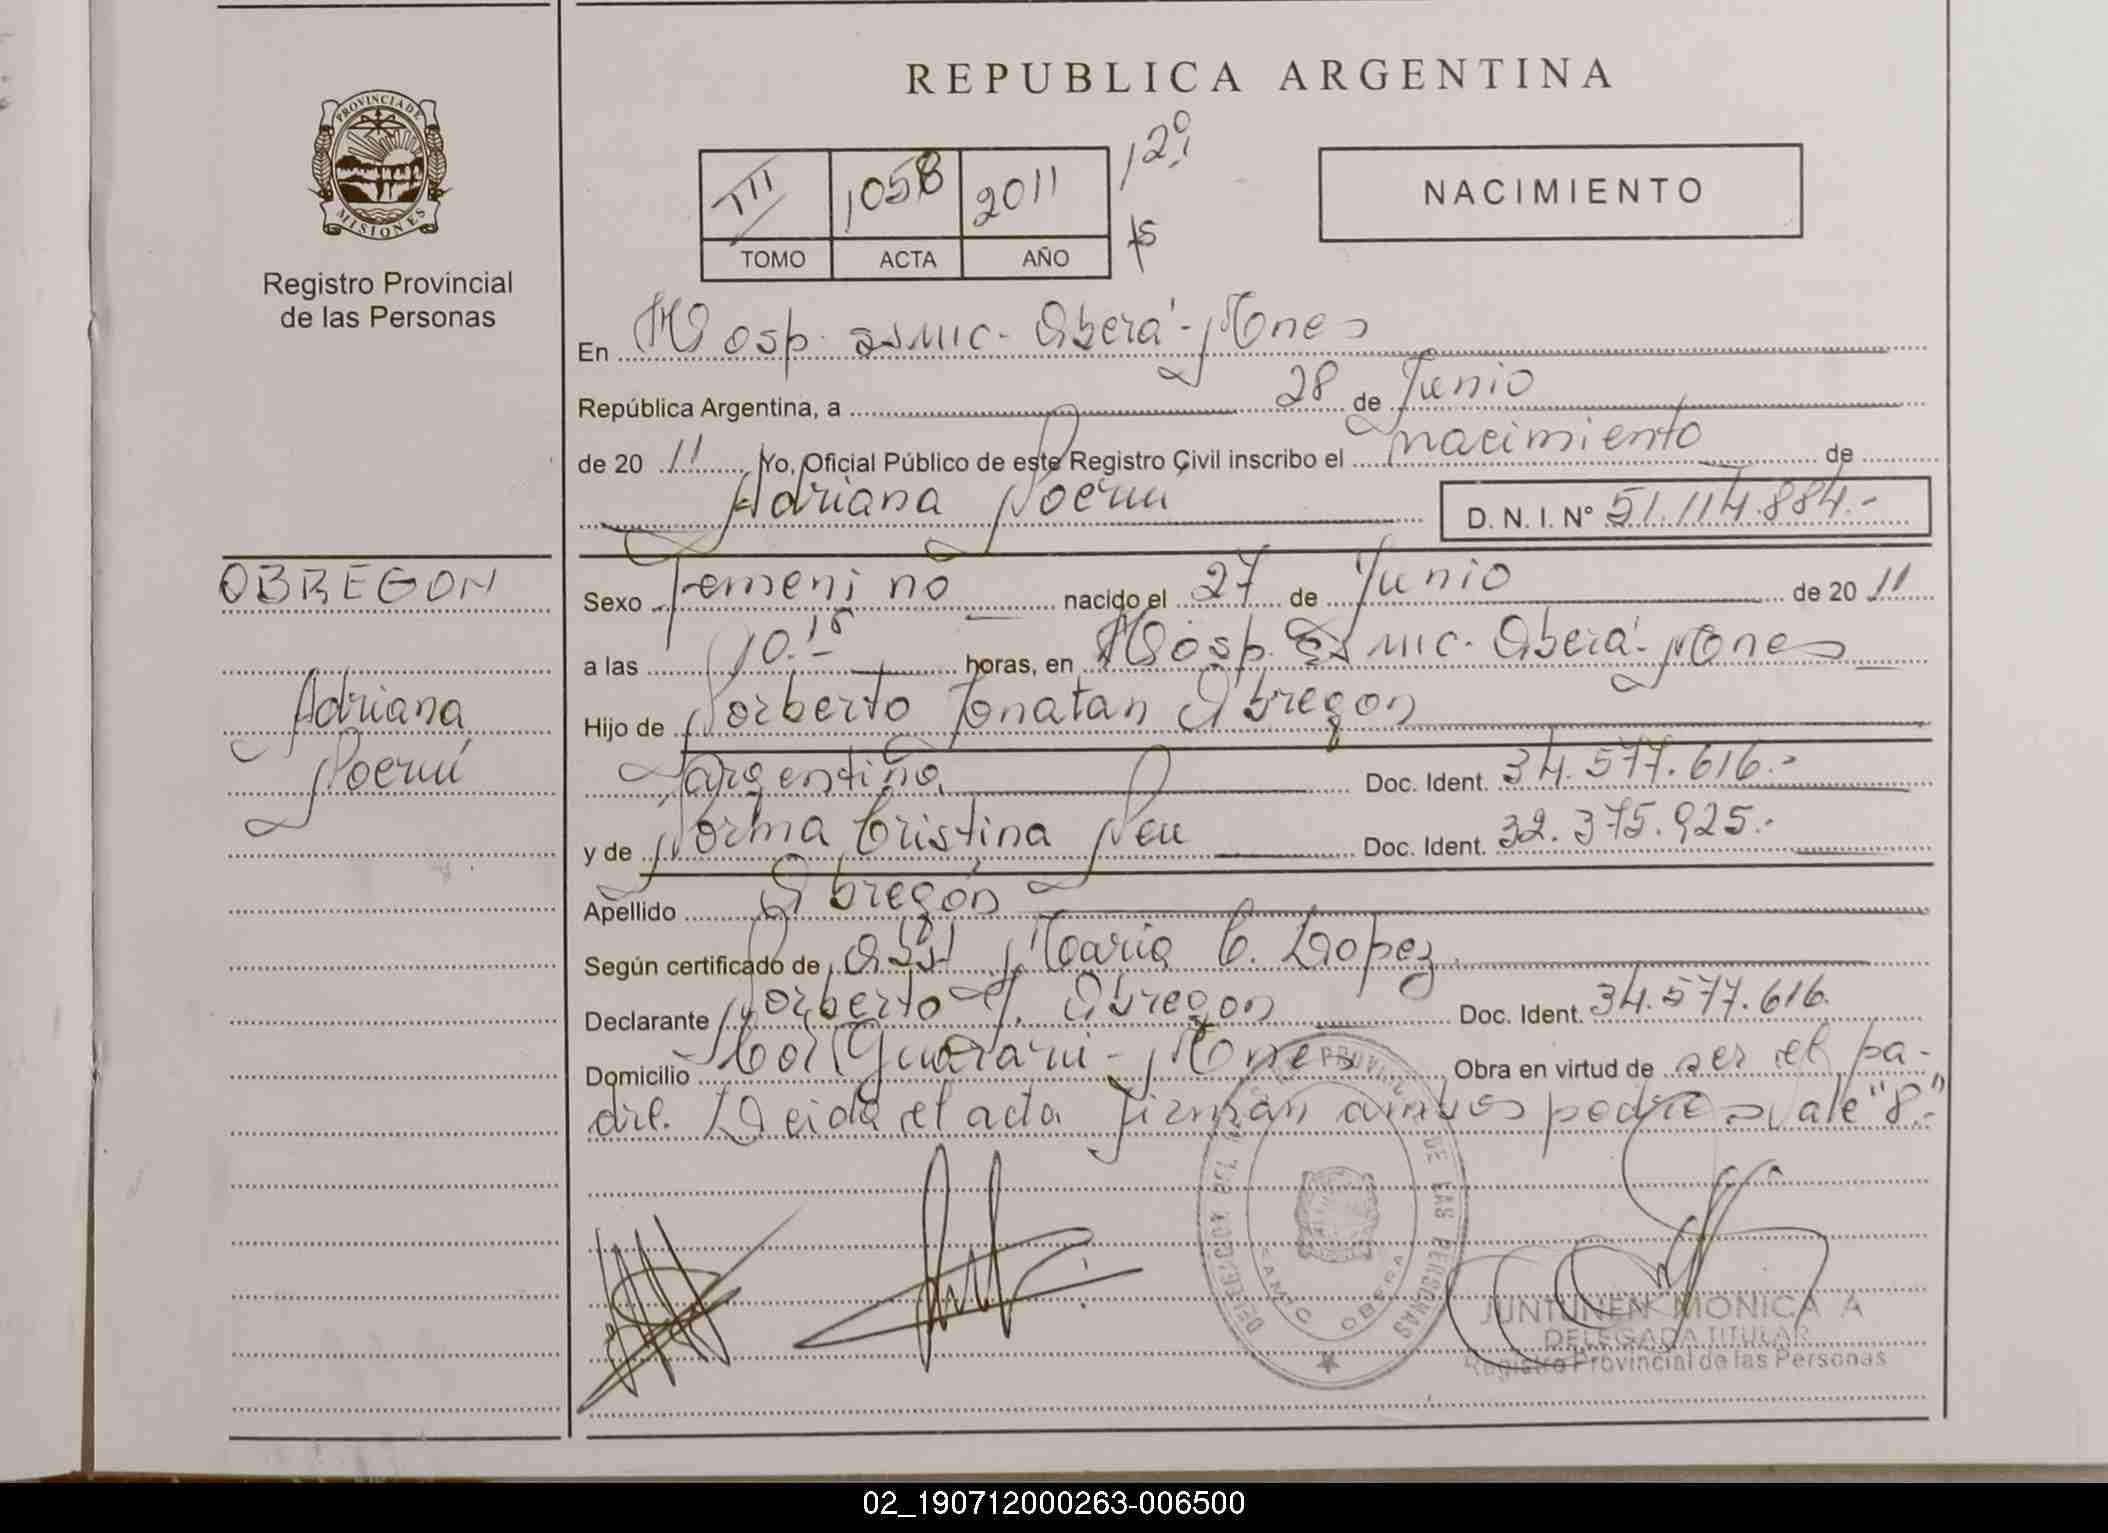 REPUBLICA ARGENTINA
PROVINCIA DE
MISIONES
Registro Provincial
de las Personas
III 1058 2011
TOMO ACTA AÑO
NACIMIENTO
En Hosp. SAMIC - Oberá - Mnes
República Argentina, a 28 de Junio
de 20 11 Yo, Oficial Público de este Registro Civil inscribo el nacimiento de
Adriana Noemí
D. N. I. N° 51.114.884.-
OBREGON
Adriana
Noemí
Sexo Femenino nacido el 27 de Junio de 20 11
a las 10.15 horas, en Hosp. SAMIC - Oberá - Mnes
Hijo de Norberto Jonatan Obregon
Argentino Doc. Ident. 34.577.616.-
y de Norma Cristina Neu Doc. Ident. 32.375.925.-
Apellido Obregón
Según certificado de Obst Maria C. Lopez
Declarante Norberto J. Obregon Doc. Ident. 34.577.616.
Domicilio Col Guarani - Mnes Obra en virtud de ser el pa-
dre. Leida el acta firman ambos padres vale "8".-
DELEGADO DEL REGISTRO PROVINCIAL DE LAS PERSONAS
SAMIC OBERA
JUNTUNEN MONICA A
DELEGADA TITULAR
Registro Provincial de las Personas
02_190712000263-006500